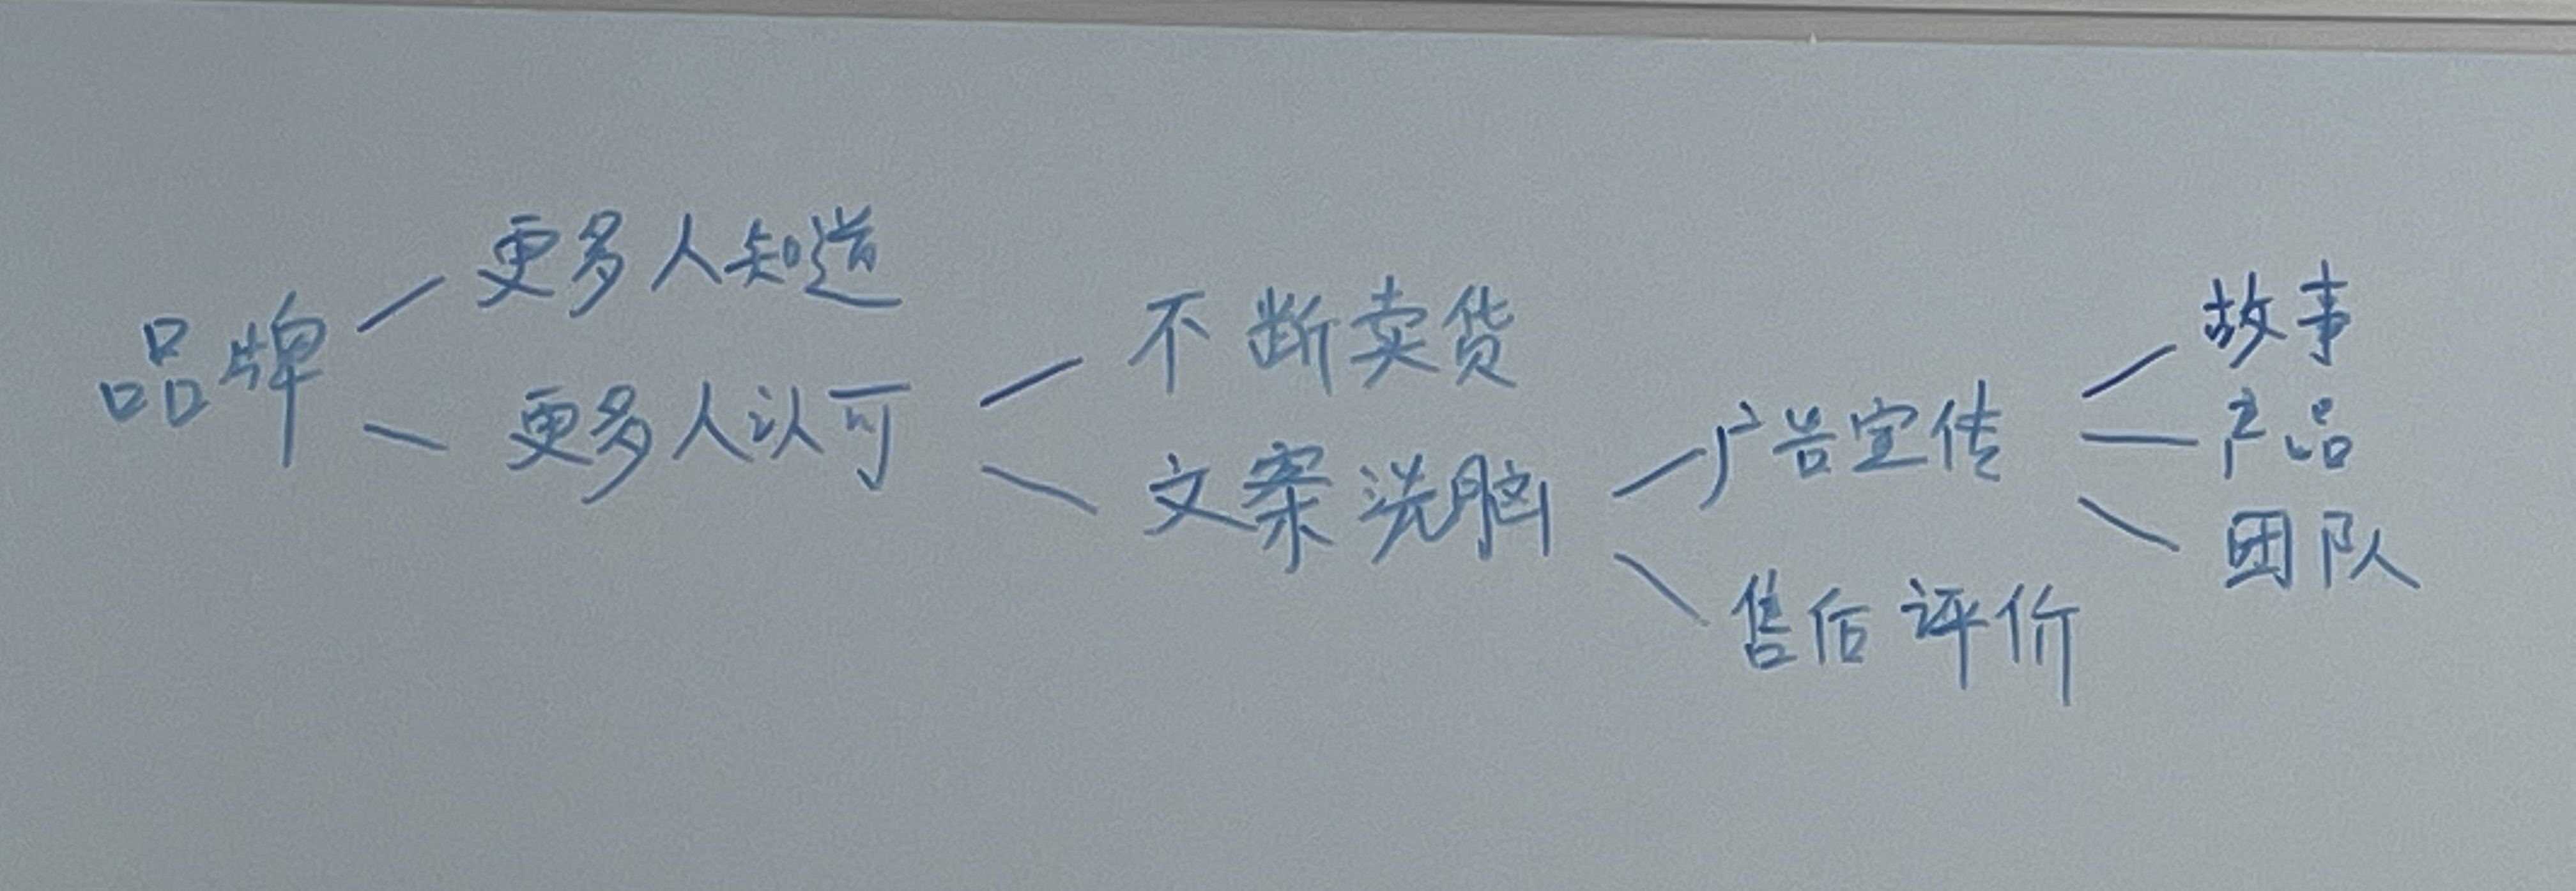 品牌
更多人知道
更多人认可
不断卖货
文案洗脑
广告宣传
售后评价
故事
产品
团队